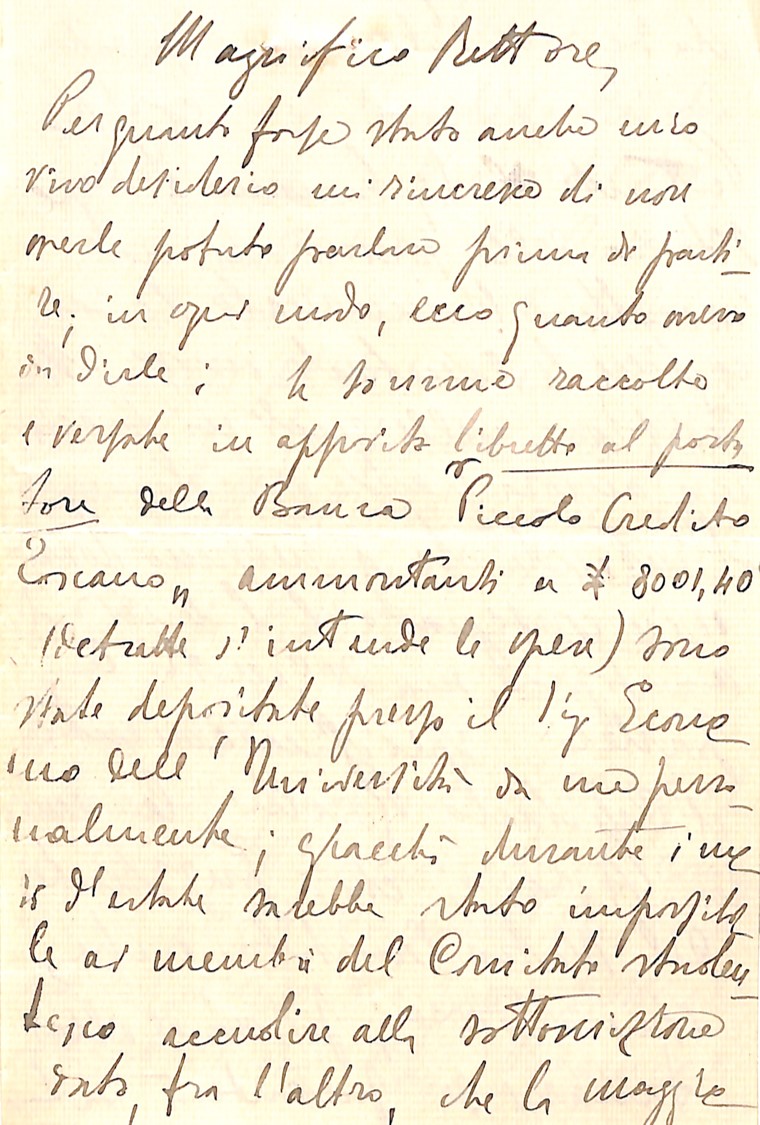 Magnifico Rettore,
Per quanto fosse stato anche mio
vivo desiderio mi rincresce di non
averle potuto parlare prima di parti-
re; in ogni modo, ecco quanto avevo
da dirle; le somme raccolte
e versate in apposito libretto al porta
tore della Banca "Piccolo Credito
Toscano" ammontanti a £ 8001,40
(detratte s'intende le spese) sono
state depositate presso il Sig Econo
mo dell'Università da me perso-
nalmente; giacché durante i me
si d'estate sarebbe stato impossibi
le ai membri del Comitato studen-
tesco accudire alla sottoscrizione
dato, fra l'altro, che la maggio